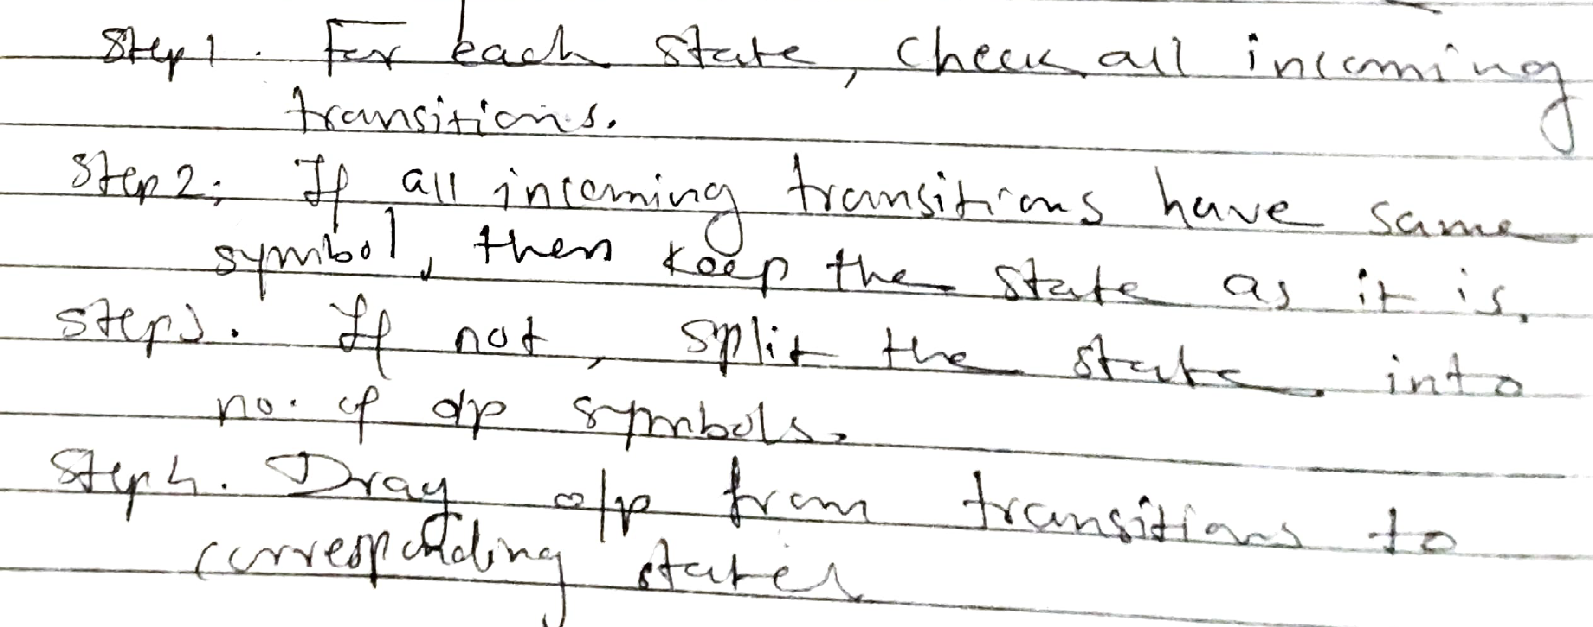 Step 1. For each state, check all incoming
transitions.
Step 2: If all incoming transitions have same
symbol, then keep the state as it is.
Step 3. If not, split the state into
no. of o/p symbols.
Step 4. Drag o/p from transitions to
corresponding states